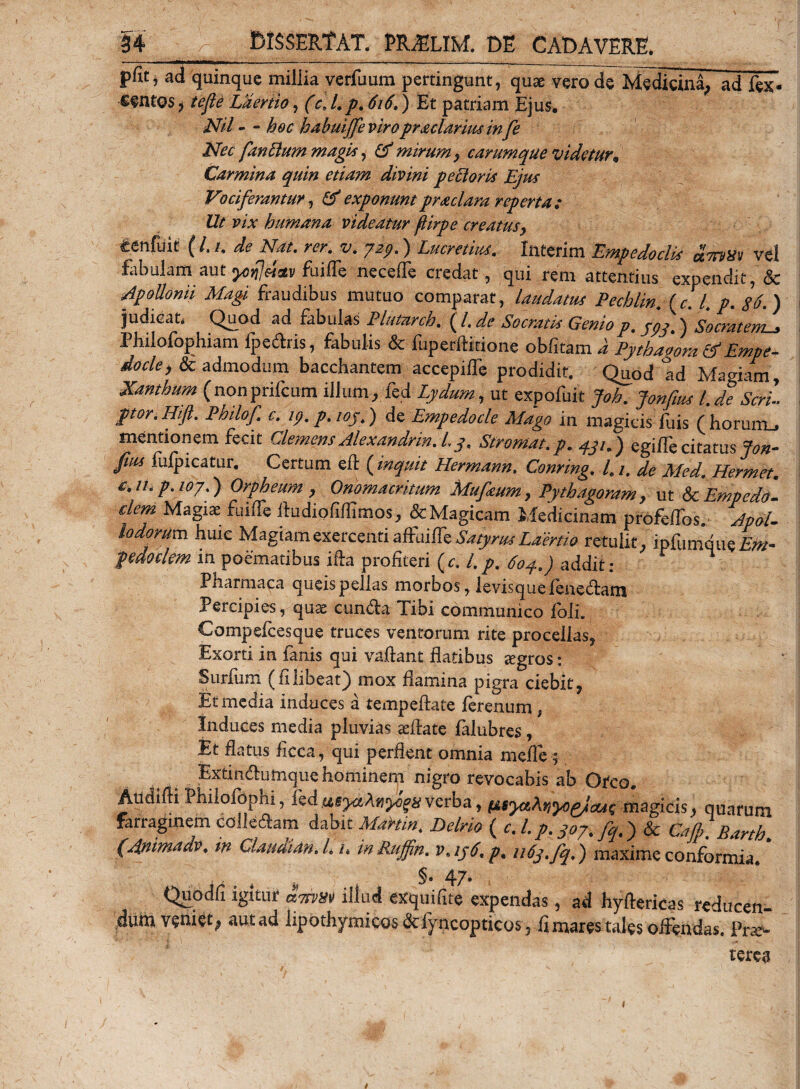 34 DISSERTAT. PRÆLIM. DE CADAVERE.
psit, ad quinque millia versuum pertingunt, quæ vero de Medicinâ, ad sex-
centos, teste Läertio, (c. l. p. 616.) Et patriam Ejus.
Nil - - hoc habuisse viro præclarius in se
Nec sanctum magis, & mirum, carumque videtur.
Carmina quin etiam divini pectoris Ejus
Vociferantur, & exponunt præclara reperta:
Ut vix humana videatur stirpe creatus,
censuit (l. 1. de Nat. rer. v. 729.) Lucretius. Interim Empedoclis ἄπνȣν vel
fabulam aut γοηʃείαν fuisse necesse credat, qui rem attentius expendit, &
Apollonii Magi fraudibus mutuo comparat, laudatus Pechlin. (c. l. p. 86.)
judicat. Quod ad fabulas Plutarch. (l. de Socratis Genio p. 593.) Socratem
Philosophiam spectris, fabulis & superstitione obsitam à Pythagora & Empe-
docle, & admodum bacchantem accepisse prodidit. Quod ad Magiam,
Xanthum (non priscum illum, sed Lydum, ut exposuit Joh. Jonsius l. de Scri-
ptor. Hist. Philos. c. 19. p. 105.) de Empedocle Mago in magicis suis (horum
mentionem fecit Clemens Alexandrin. l. 3. Stromat. p. 431.) egisse citatus Jon-
sius suspicatur. Certum est (inquit Hermann. Conring. l. 1. de Med. Hermet.
c. 11. p. 107.) Orpheum, Onomacritum Musæum, Pythagoram, ut & Empedo-
clem Magiæ fuisse studiosissimos, & Magicam Medicinam professos. Apol-
lodorum huic Magiam exercenti affuisse Satyrus Laërtio retulit, ipsumque Em-
pedoclem in poëmatibus ista profiteri (c. l. p. 604.) addit:
Pharmaca queis pellas morbos, levisque senectam
Percipies, quæ cuncta Tibi communico soli.
Compescesque truces ventorum rite procellas,
Exorti in sanis qui vastant flatibus ægros:
Sursum (si libeat) mox flamina pigra ciebit,
Et media induces à tempestate serenum,
Induces media pluvias æstate salubres,
Et flatus sicca, qui perflent omnia messe;
Extinctumque hominem nigro revocabis ab Orco.
Audisti Philosophi, sed μεγαληγόρȣ verba, μεγαληγορίαις magicis, quarum
farraginem collectam dabit Martin. Delrio (c. l. p. 307. sq.) & Casp. Barth.
(Animadv. in Claudian. l. 1. in Ruffin. v. 156. p. 1163. sq.) maxime conformia.
§. 47.
Quodsi igitur ἄπνȣν illud exquisite expendas, ad hystericas reducen-
dum veniet, aut ad lipothymicos & syncopticos, si mares tales offendas. Præ-
terea